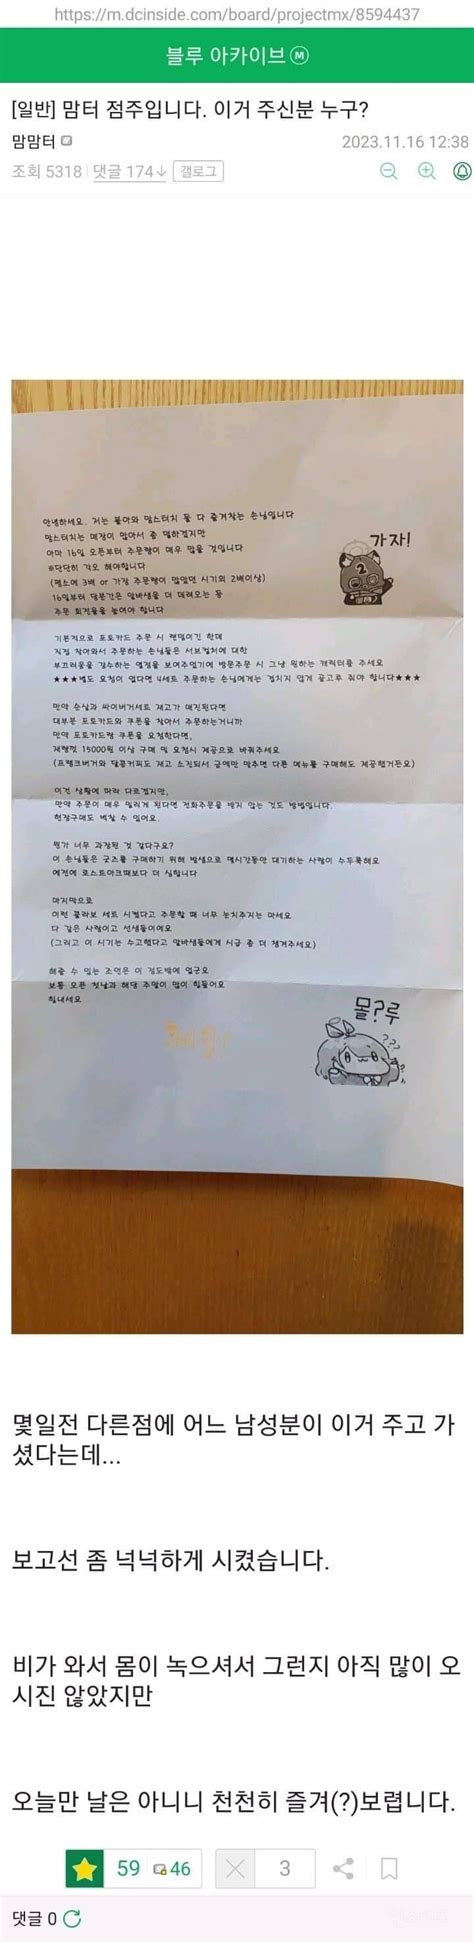 https://m.dcinside.com/board/projectmx/8594437
블루 아카이브 ⓜ
[일반] 맘터 점주입니다. 이거 주신분 누구?
맘맘터
2023.11.16 12:38
조회 5318 | 댓글 174↓ 갤로그
안녕하세요. 저는 블아와 맘스터치 둘 다 즐겨찾는 손님입니다
맘스터치는 매장이 많아서 좀 덜하겠지만
아마 16일 오픈부터 주문량이 매우 많을 것입니다
※단단히 각오 해야합니다
(평소에 3배 or 가장 주문량이 많았던 시기의 2배이상)
16일부터 당분간은 알바생을 더 데려오는 등
주문 회전율을 높여야 합니다
가자!
2
기본적으로 포토카드 주문 시 랜덤이긴 한데
직접 찾아와서 주문하는 손님들은 서브컬처에 대한
부끄러움을 감수하는 열정을 보여주었기에 방문주문 시 그냥 원하는 캐릭터를 주세요
★★★별도 요청이 없다면 4세트 주문하는 손님에게는 겹치지 않게 골고루 줘야 합니다★★★
만약 순살과 싸이버거세트 재고가 매진된다면
대부분 포토카드와 쿠폰을 찾아서 주문하는거니까
만약 포토카드랑 쿠폰을 요청한다면,
재량껏 15000원 이상 구매 및 요청시 제공으로 바꿔주세요
(프랭크버거와 달콤커피도 재고 소진되서 금액만 맞추면 다른 메뉴를 구매해도 제공했거든요)
이건 상황에 따라 다르겠지만,
만약 주문이 매우 밀리게 된다면 전화주문을 받지 않는 것도 방법입니다.
현장구매도 벅찰 수 있어요.
뭔가 너무 과장된 것 같다구요?
이 손님들은 굿즈를 구매하기 위해 밤샘으로 몇시간동안 대기하는 사람이 수두룩해요
예전에 로스트아크때보다 더 심합니다
마지막으로
이런 콜라보 세트 시켰다고 주문할 때 너무 눈치주지는 마세요
다 같은 사람이고 선생들이에요
(그리고 이 시기는 수고했다고 알바생들에게 시급 좀 더 챙겨주세요)
해줄 수 있는 조언은 이 정도밖에 없군요
보통 오픈 첫날과 해당 주말이 많이 힘들어요
힘내세요
몰?루
???
몇일전 다른점에 어느 남성분이 이거 주고 가
셨다는데...
보고선 좀 넉넉하게 시켰습니다.
비가 와서 몸이 녹으셔서 그런지 아직 많이 오
시진 않았지만
오늘만 날은 아니니 천천히 즐겨(?)보렵니다.
59 46 3
댓글 0